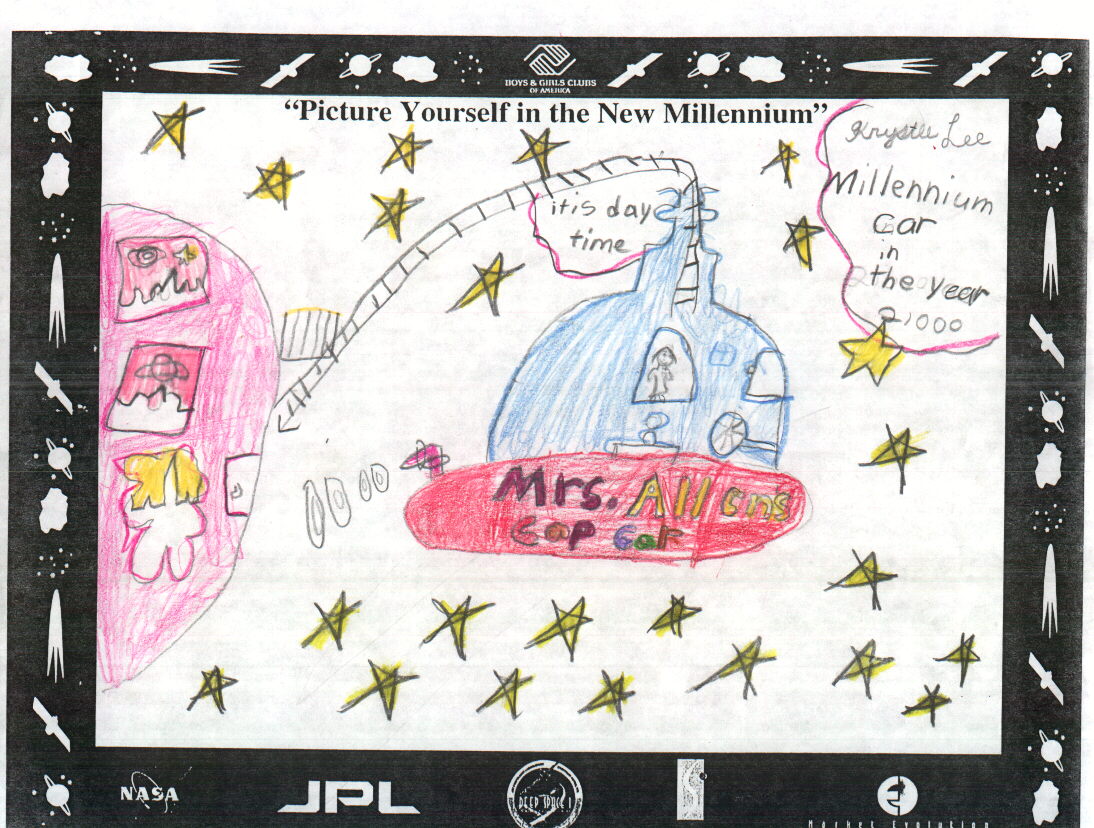 BOYS & GIRLS CLUBS
OF AMERICA
“Picture Yourself in the New Millennium”
Krystle Lee
Millennium
Car
in
the year
2,000
it is day
time
Mrs. Allens
Cap Car
NASA
JPL
DEEP SPACE 1
Market Evolution